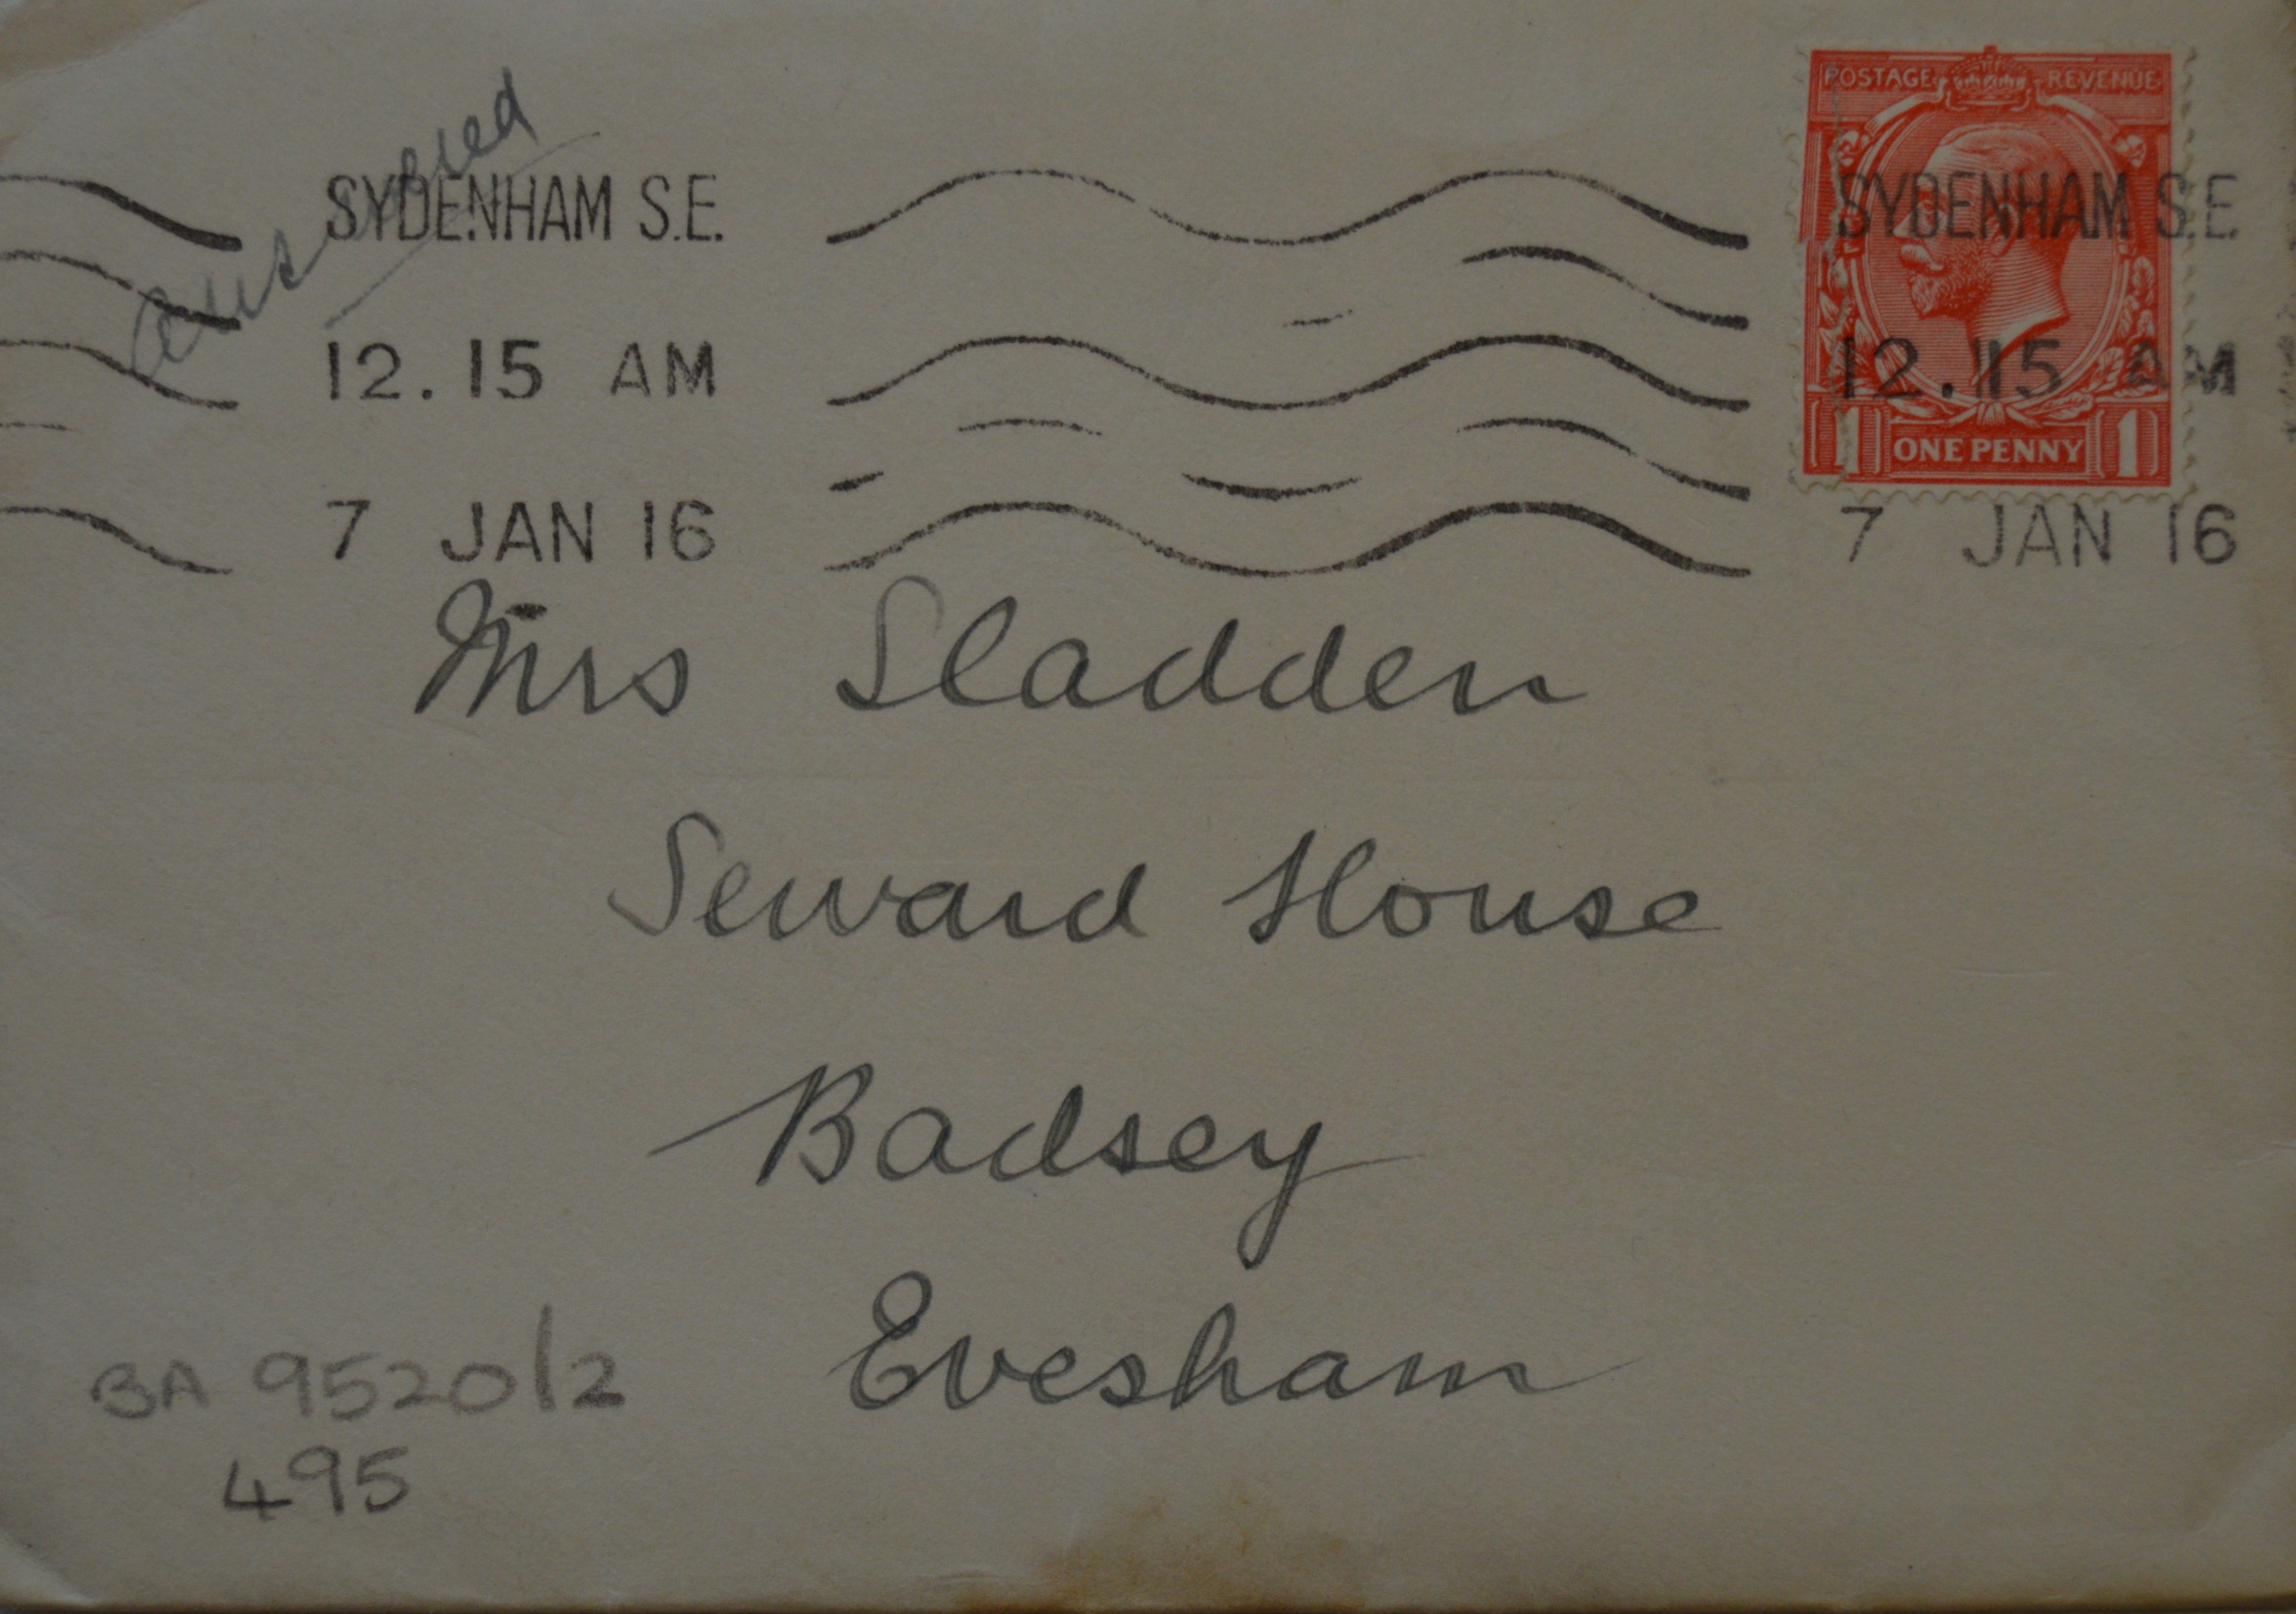 answered
SYDENHAM S.E.
12.15 AM
7 JAN 16
POSTAGE REVENUE
SYDENHAM S.E.
12.15 AM
1 ONE PENNY 1
7 JAN 16
Mrs Sladden
Seward House
Badsey
Evesham
BA 9520/2
495